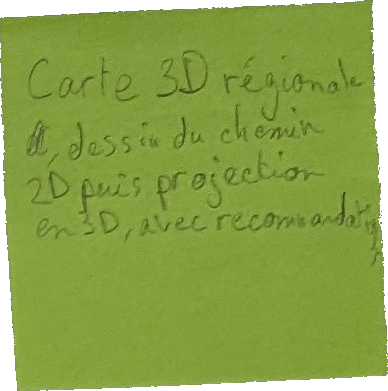 Carte 3D régionale
, dessin du chemin
2D puis projection
en 3D, avec recommandat°s